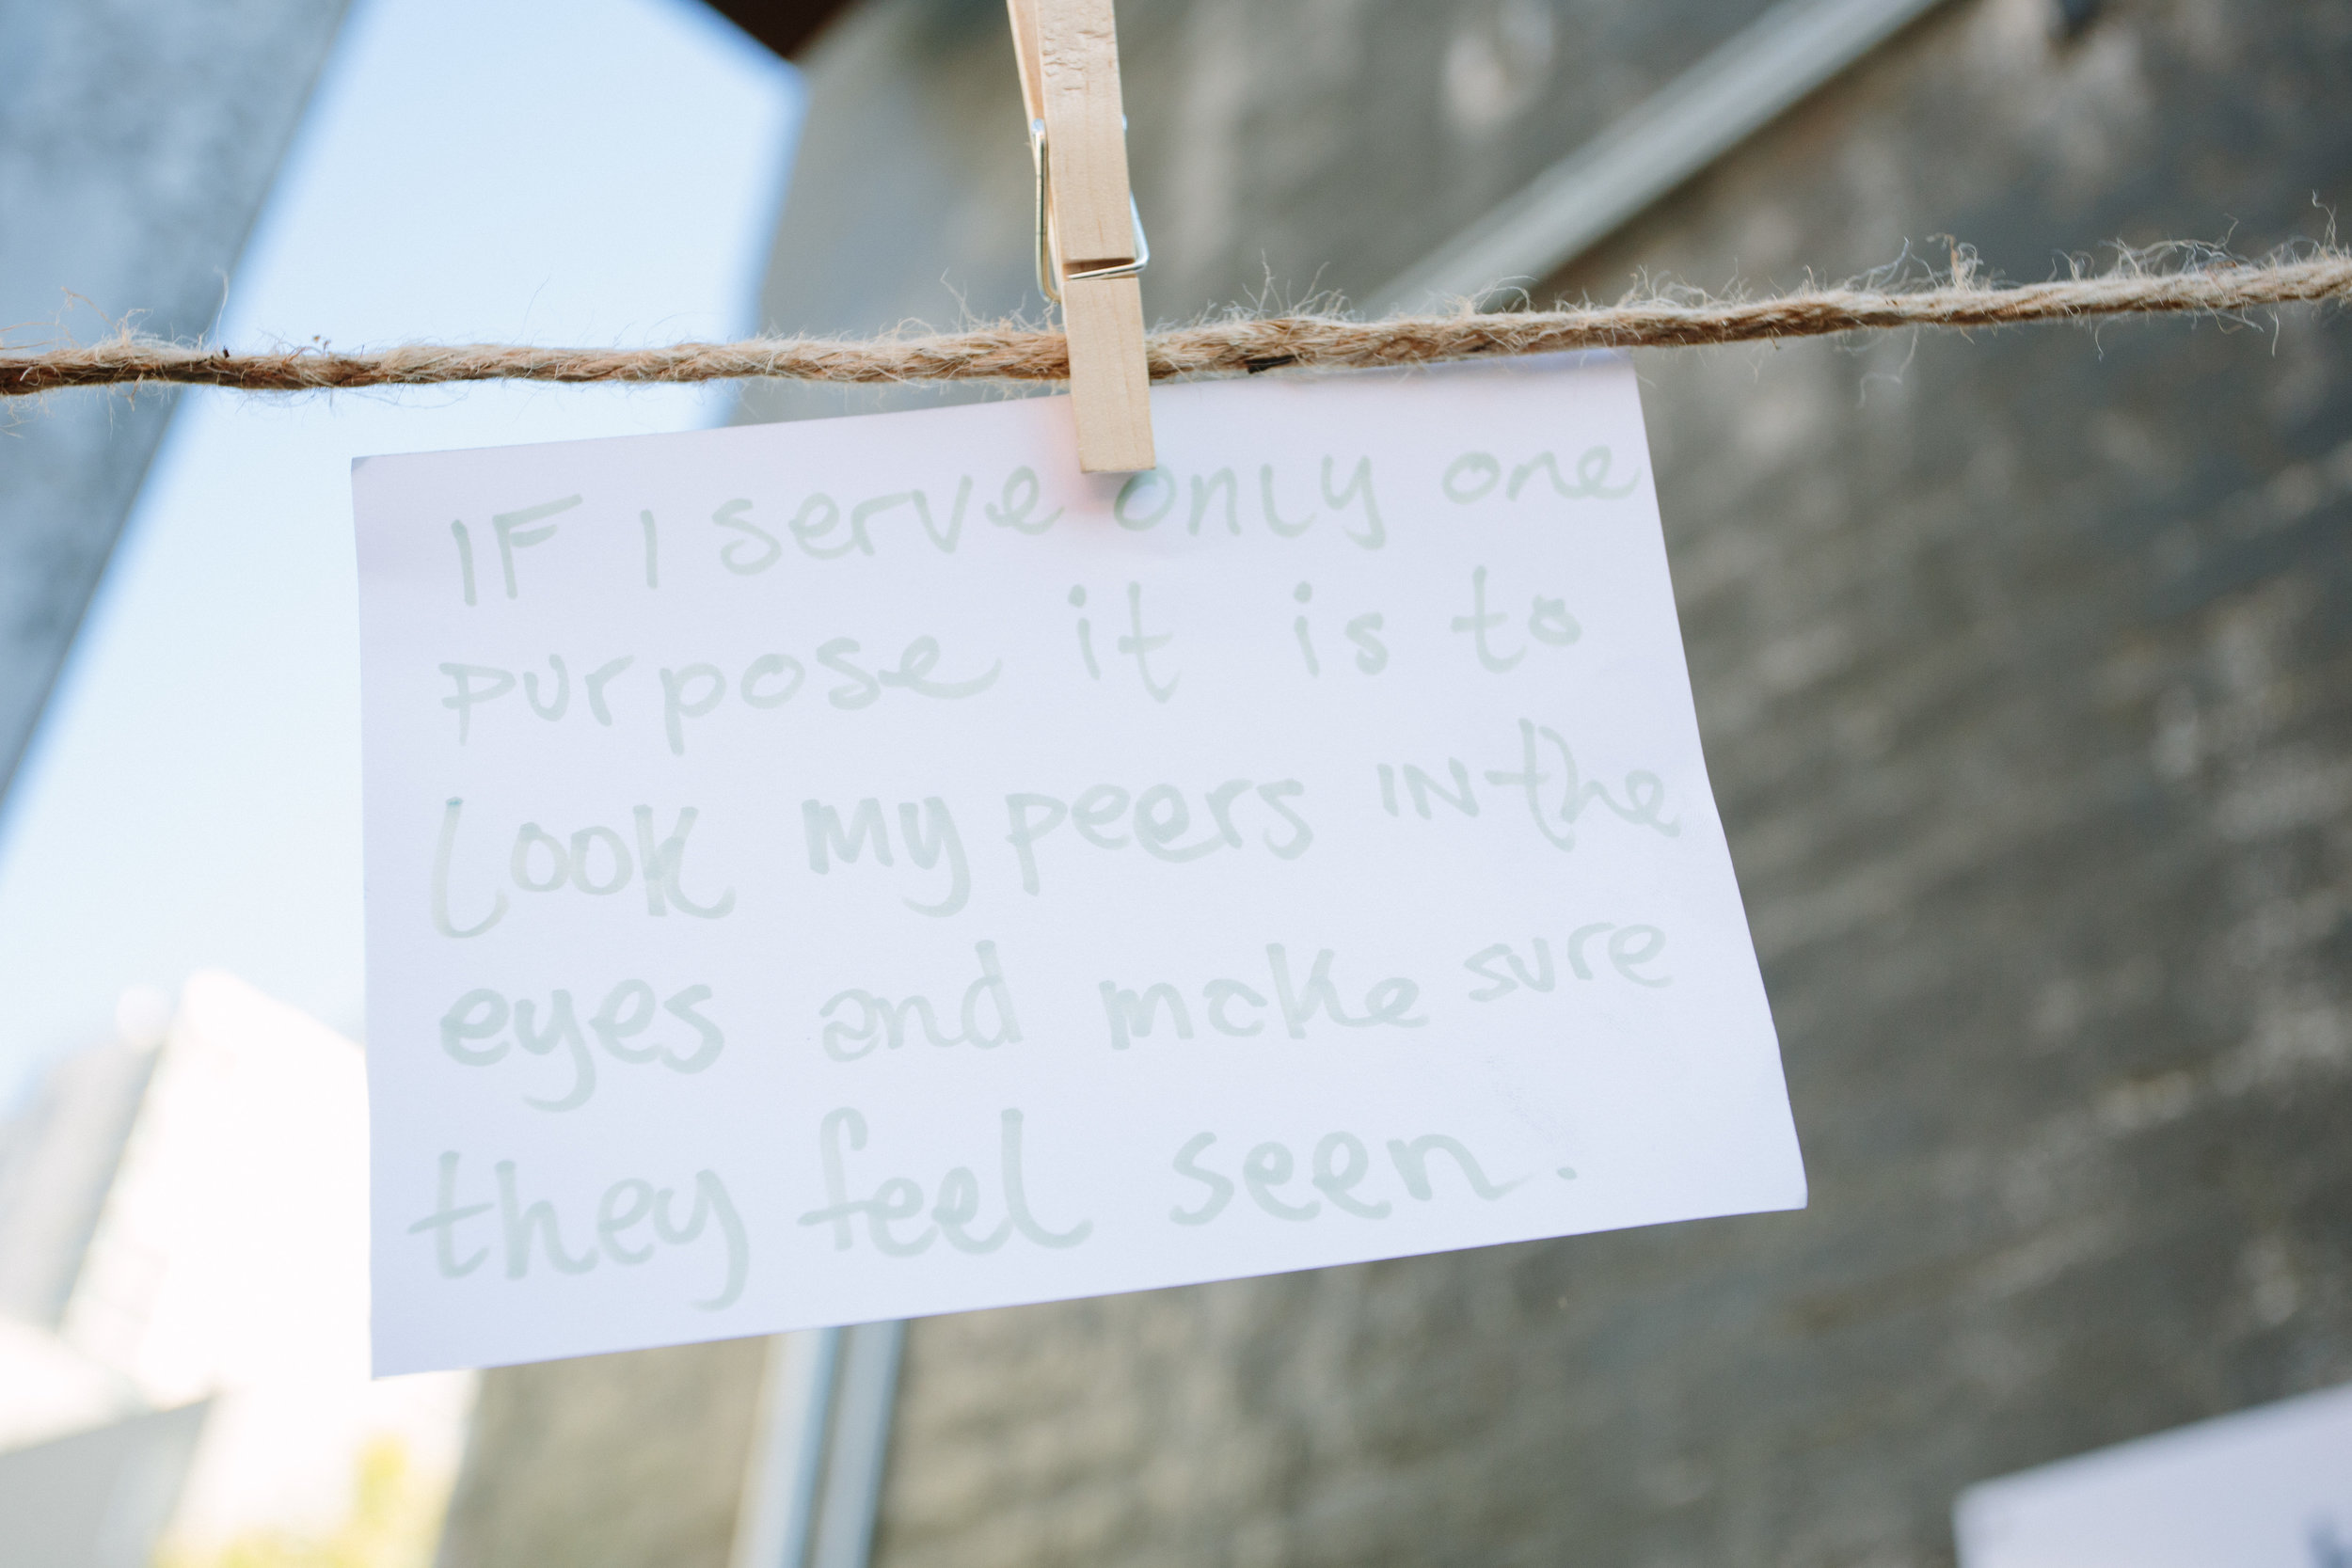 IF I serve only one
purpose it is to
look my peers IN the
eyes and make sure
they feel seen.